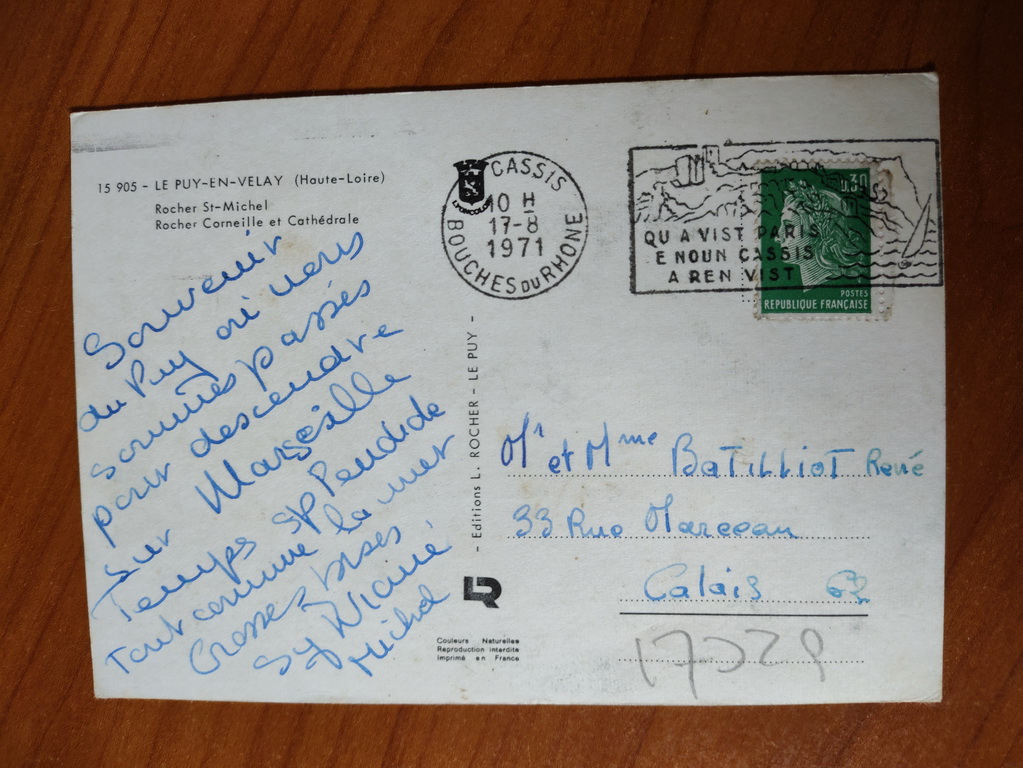 15 905 - LE PUY-EN-VELAY (Haute-Loire)
Rocher St-Michel
Rocher Corneille et Cathédrale
Souvenir
du Puy où nous
sommes passés
pour descendre
sur Marseille
Temps splendide
tout comme la mer
Grosses bises
Michel
- Editions L. ROCHER - LE PUY -
LR
Couleurs Naturelles
Reproduction interdite
Imprimé en France
CASSIS
10 H
17-8
1971
BOUCHES DU RHONE
QU A VIST PARIS
E NOUN CASSIS
A REN VIST
0.30
POSTES
REPUBLIQUE FRANÇAISE
Mr et Mme BATILLIOT René
33 Rue Marceau
Calais 62